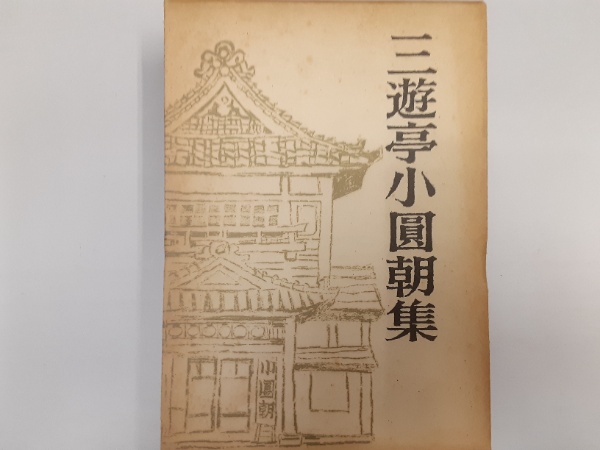 三遊亭小圓朝集
小圓朝